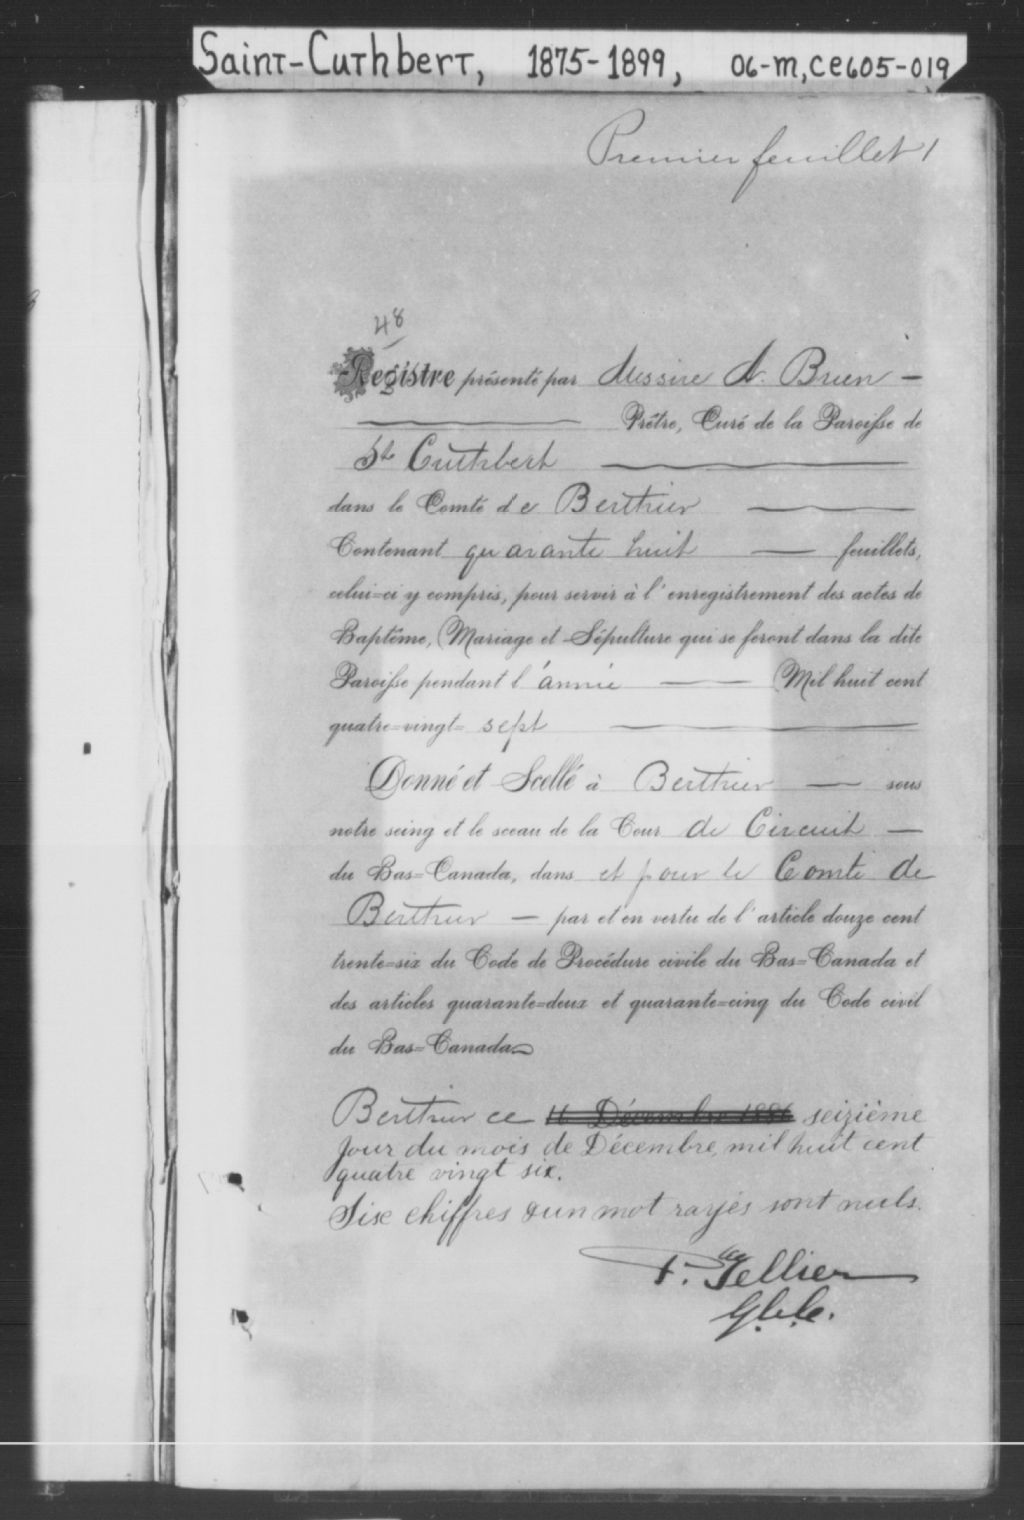 Saint-Cuthbert, 1875-1899, 06-M, CE605-019
Premier feuillet 1
48
Registre présenté par Messire A. Brien —
Prêtre, Curé de la Paroisse de
St Cuthbert
dans le Comté de Berthier
Contenant quarante huit — feuillets,
celui=ci y compris, pour servir à l'enregistrement des actes de
Baptême, Mariage et Sépulture qui se feront dans la dite
Paroisse pendant l'année — Mil huit cent
quatre=vingt= sept
Donné et Scellé à Berthier — sous
notre seing et le sceau de la Cour de Circuit —
du Bas=Canada, dans et pour le Comté de
Berthier — par et en vertu de l'article douze cent
trente=six du Code de Procédure civile du Bas=Canada et
des articles quarante=deux et quarante=cinq du Code civil
du Bas=Canada
Berthier ce Décembre 1886 seizième
jour du mois de Décembre, mil huit cent
quatre vingt six.
Six chiffres & un mot rayés sont nuls.
Tellier
G.C.C.